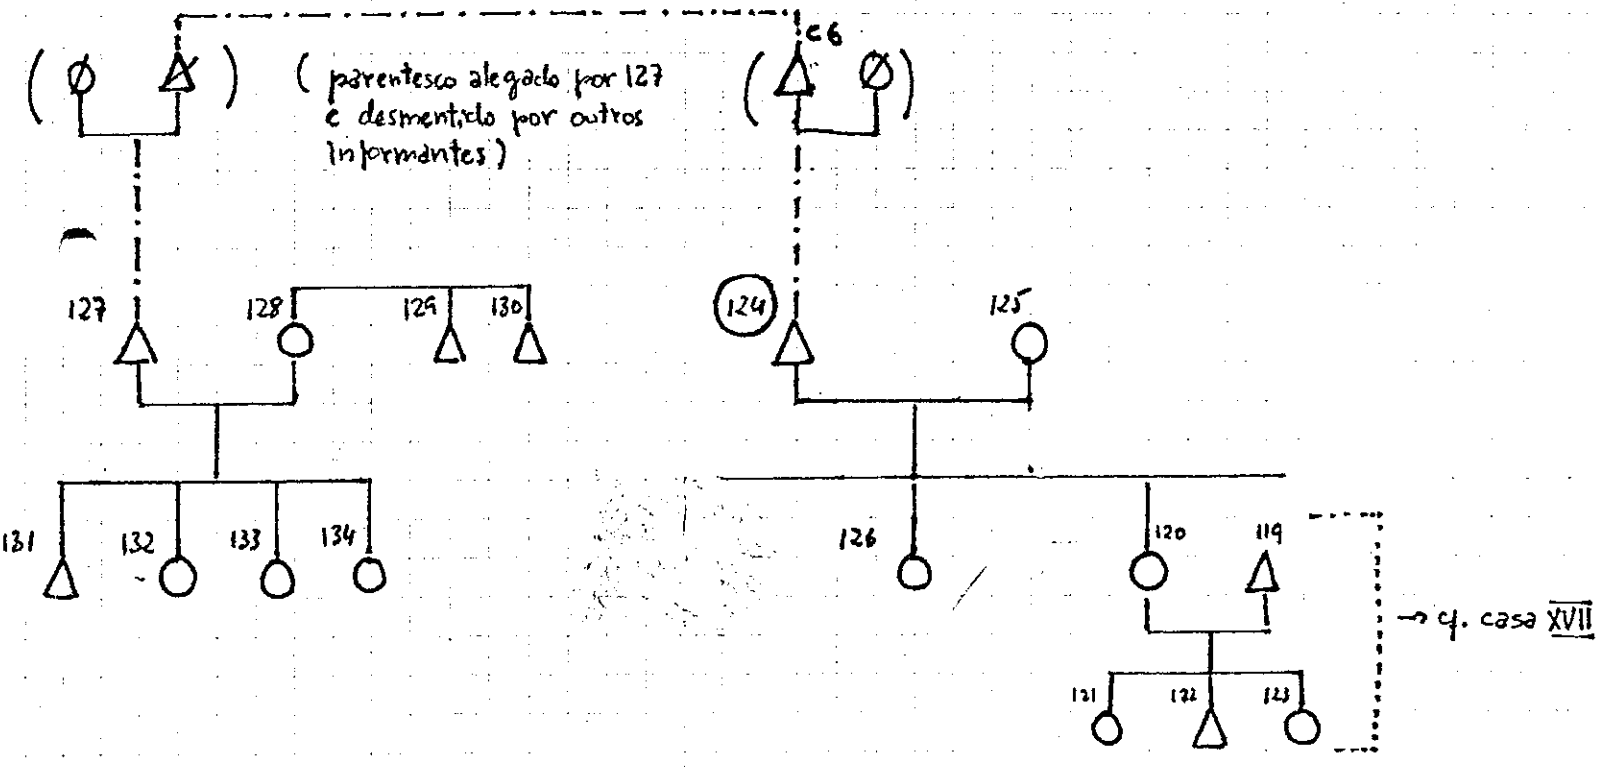 c6
( parentesco alegado por 127
e desmentido por outros
informantes )
127
128
129
130
124
125
131
132
133
134
126
120
119
→ cf. casa XVII
121
122
123